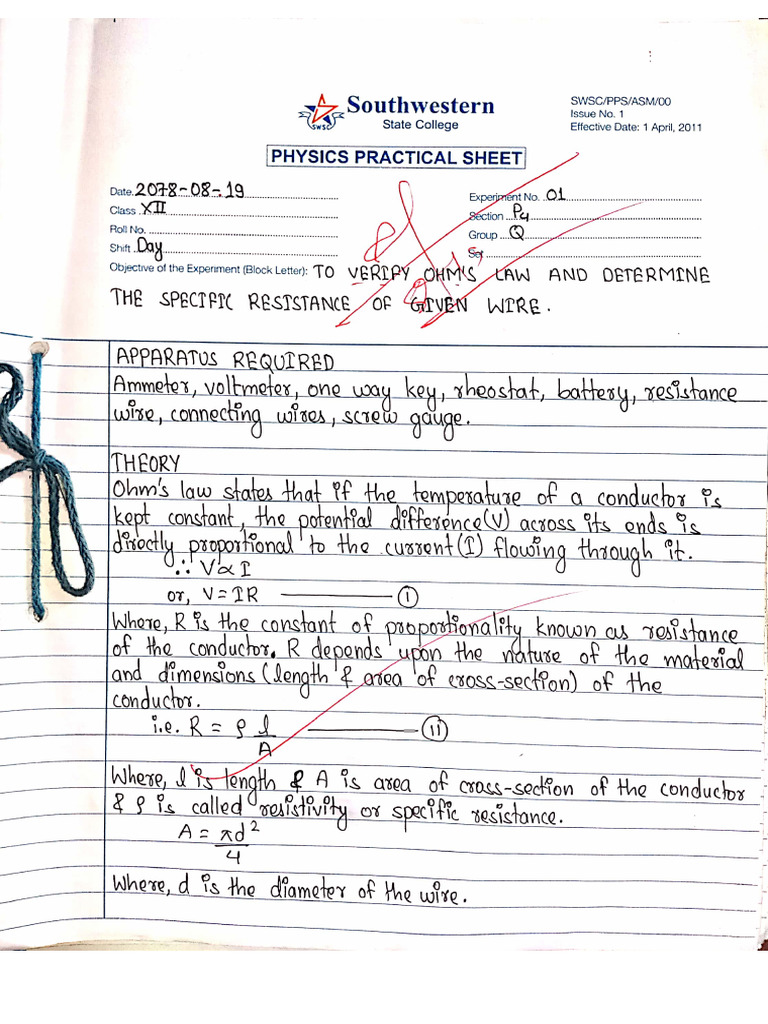 Southwestern
State College
SWSC
SWSC/PPS/ASM/00
Issue No. 1
Effective Date: 1 April, 2011
PHYSICS PRACTICAL SHEET
Date. 2078-08-19
Experiment No. 01
Class XII
Section P4
Roll No.
Group Q
Shift Day
Set
Objective of the Experiment (Block Letter): TO VERIFY OHM'S LAW AND DETERMINE
THE SPECIFIC RESISTANCE OF GIVEN WIRE.
APPARATUS REQUIRED
Ammeter, voltmeter, one way key, rheostat, battery, resistance
wire, connecting wires, screw gauge.
THEORY
Ohm's law states that if the temperature of a conductor is
kept constant, the potential difference(V) across its ends is
directly proportional to the current(I) flowing through it.
∴ V∝I
or, V=IR ——— (i)
Where, R is the constant of proportionality known as resistance
of the conductor. R depends upon the nature of the material
and dimensions (length & area of cross-section) of the
conductor.
i.e. R = ρ l/A ——— (ii)
Where, l is length & A is area of cross-section of the conductor
& ρ is called resistivity or specific resistance.
A = πd²/4
Where, d is the diameter of the wire.